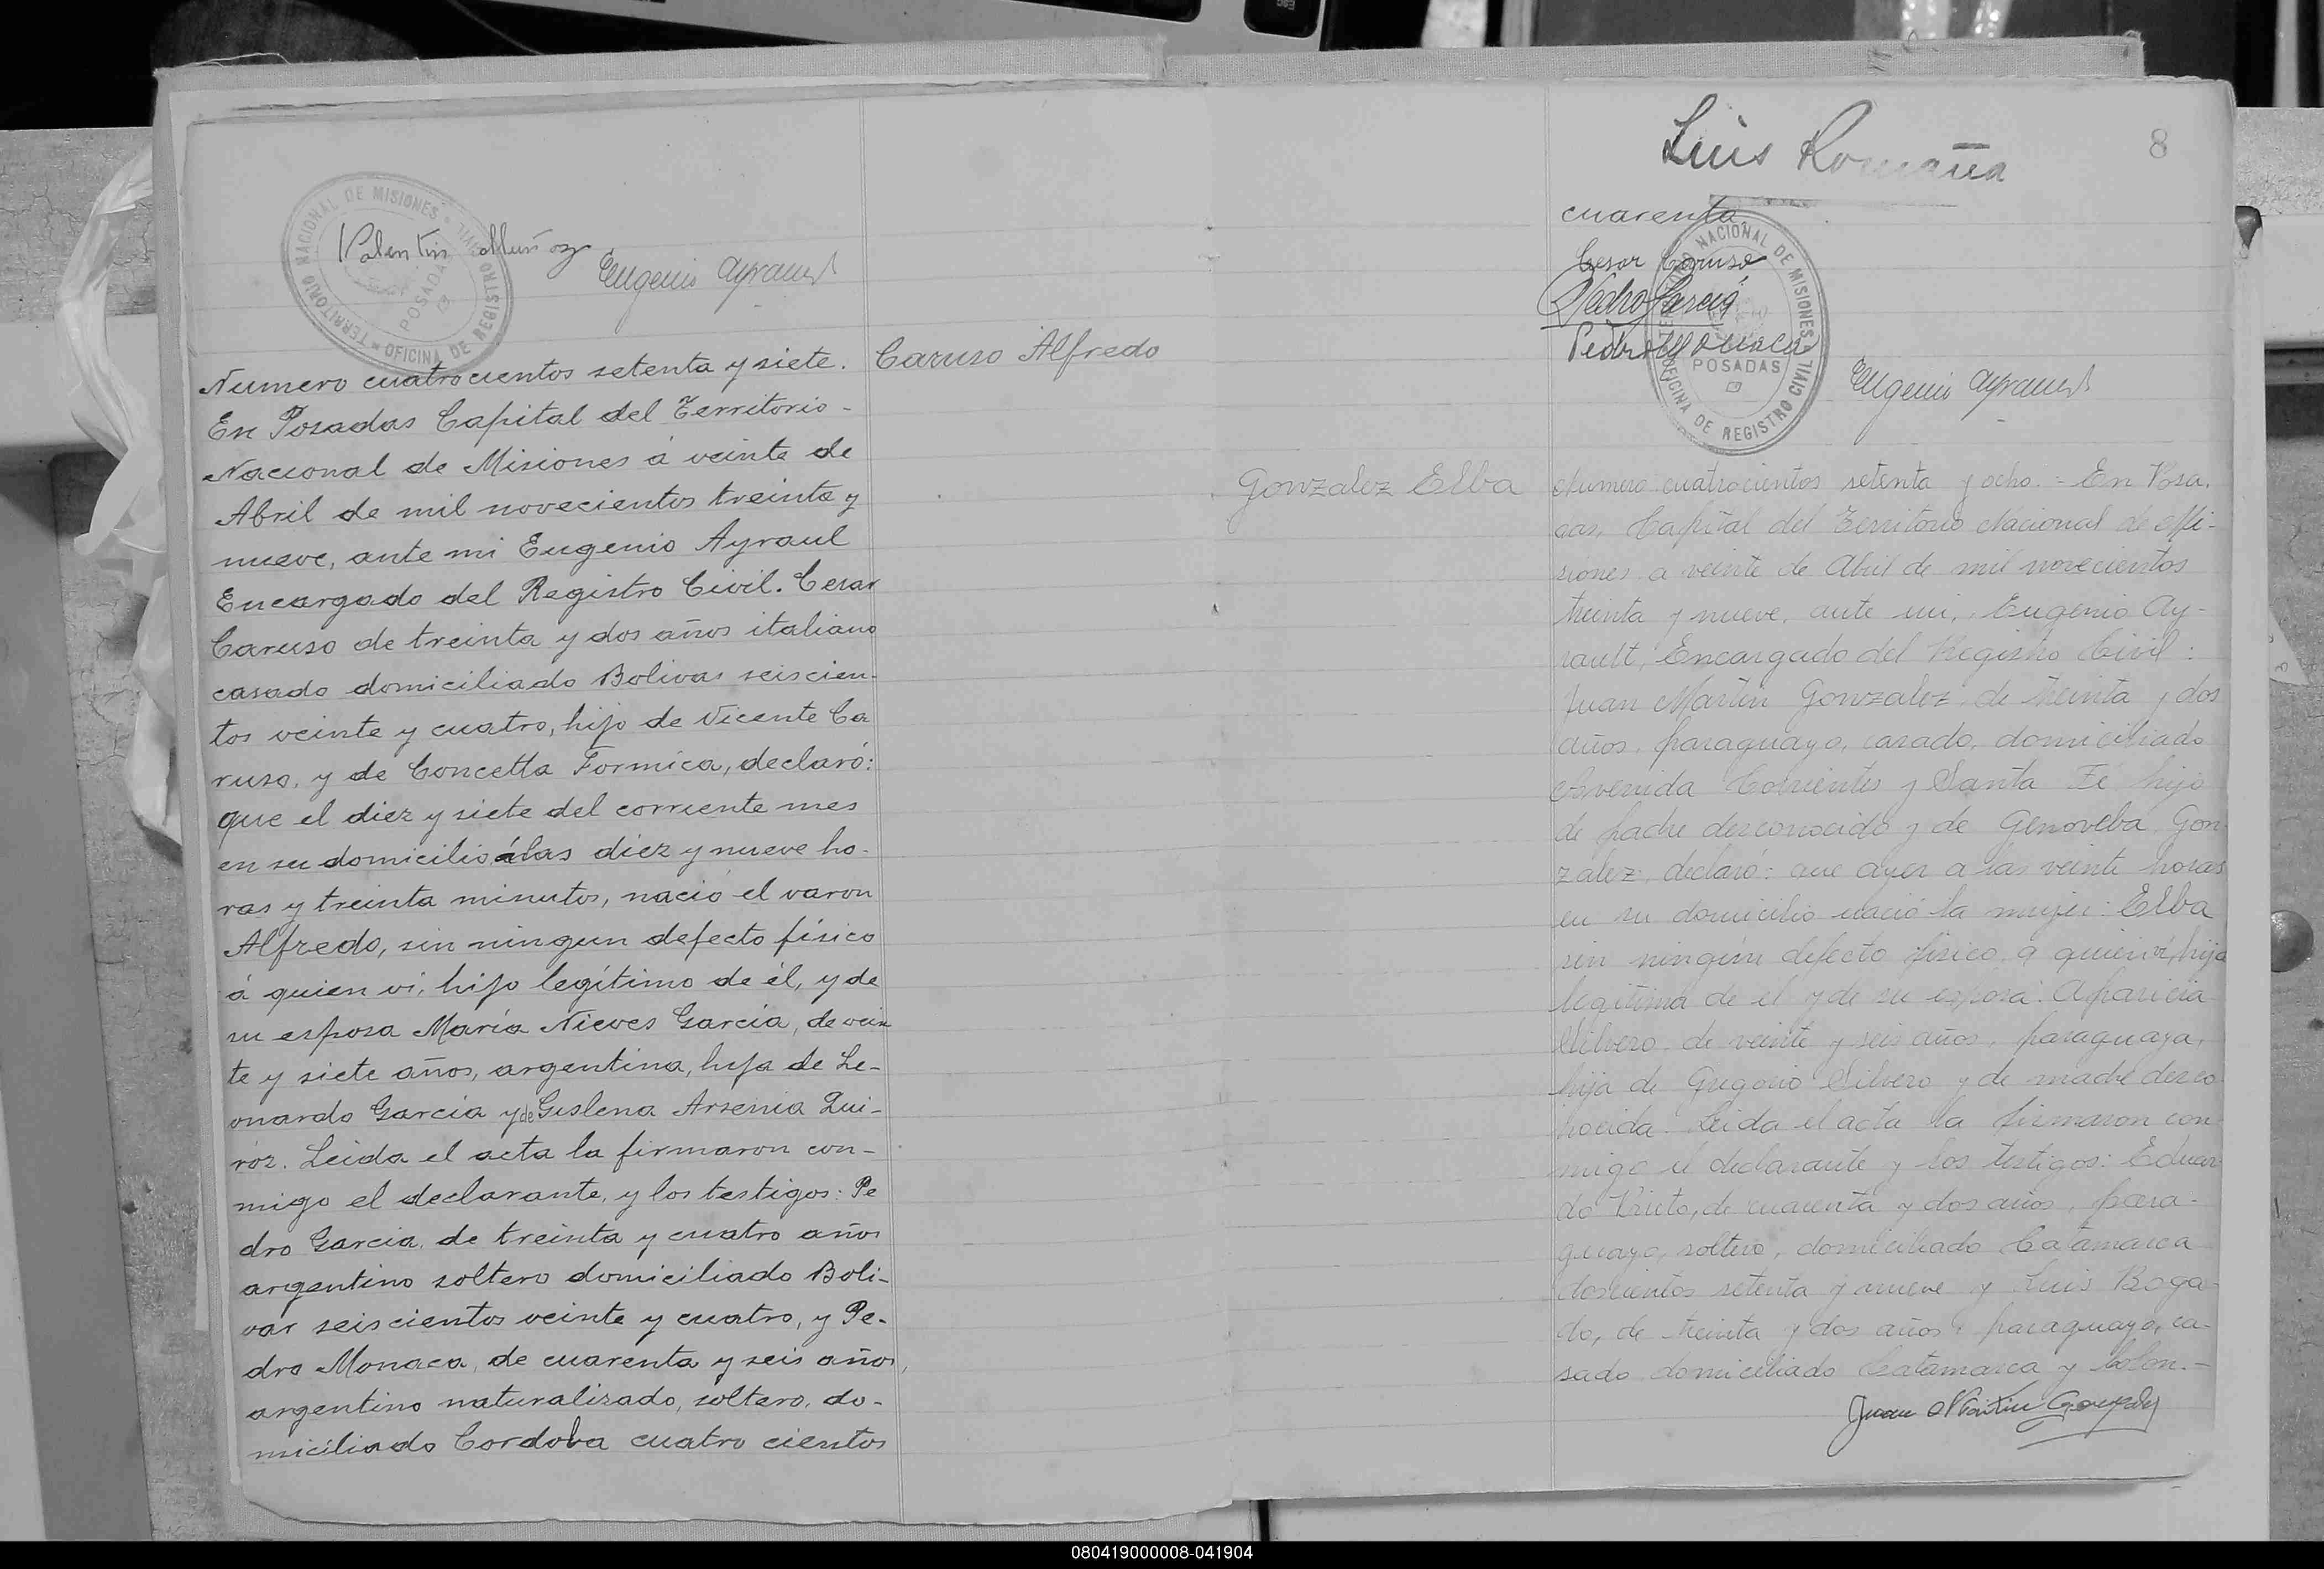 TERRITORIO NACIONAL DE MISIONES
OFICINA DE REGISTRO CIVIL
POSADAS
Valentin Muñoz
Eugenio Ayrault
Caruso Alfredo
Numero cuatrocientos setenta y siete.
En Posadas Capital del Territorio -
Nacional de Misiones á veinte de
Abril de mil novecientos treinta y
nueve, ante mi Eugenio Ayraul
Encargado del Registro Civil. Cesar
Caruso de treinta y dos años italiano
casado domiciliado Bolivar seiscien-
tos veinte y cuatro, hijo de Vicente Ca
ruso, y de Concetta Formica, declaró:
que el diez y siete del corriente mes
en su domicilio á las diez y nueve ho-
ras y treinta minutos, nació el varon
Alfredo, sin ningun defecto físico
á quien vi, hijo legítimo de él, y de
su esposa María Nieves García, de vein
te y siete años, argentina, hija de Le-
onardo García y de Gislena Arsenia Qui-
róz. Leida el acta la firmaron con-
migo el declarante, y los testigos: Pe
dro Garcia, de treinta y cuatro años
argentino soltero domiciliado Boli-
var seiscientos veinte y cuatro, y Pe-
dro Monaca, de cuarenta y seis años,
argentino naturalizado, soltero, do-
miciliado Cordoba cuatro cientos
8
Luis Romaña
cuarenta
Cesar Caruso
Pedro García
Pedro Monaca
TERRITORIO NACIONAL DE MISIONES
POSADAS
OFICINA DE REGISTRO CIVIL
Eugenio Ayrault
Gonzalez Elba
Numero cuatrocientos setenta y ocho. = En Posa.
das, Capital del Territorio Nacional de Mi-
siones a veinte de Abril de mil novecientos
treinta y nueve, ante mi, Eugenio Ay-
rault, Encargado del Registro Civil:
Juan Martin Gonzalez, de treinta y dos
años, paraguayo, casado, domiciliado
Avenida Corrientes y Santa Fé hijo
de padre desconocido y de Genoveba Gon-
zalez, declaró: que ayer a las veinte horas
en su domicilio nació la mujer: Elba
sin ningún defecto físico, a quien vi, hija
legitima de el y de su esposa: Aparicia
Silvero, de veinte y seis años, paraguaya,
hija de Gregorio Silvero y de madre desco-
nocida. Leida el acta la firmaron con-
migo el declarante y los testigos: Eduar-
do Prieto, de cuarenta y dos años, para-
guayo, soltero, domiciliado Catamarca
doscientos setenta y nueve y Luis Boga-
do, de treinta y dos años, paraguayo, ca-
sado domiciliado Catamarca y Colon.-
Juan Martin Gonzalez
080419000008-041904